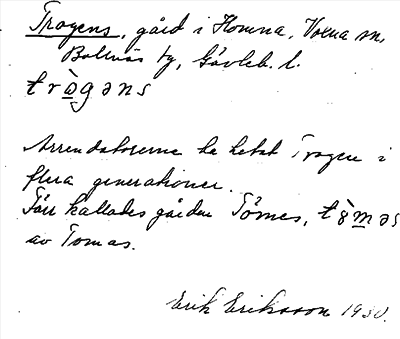 Trogens, gård i Homna, Voxna sn,
Bollnäs tg, Gävleb. l.
trògəns
Arrendatorerna ha hetat Trogen i
flera generationer.
Förr kallades gården Tömes, tö̀məs
av Tomas.
Erik Eriksson 1930.